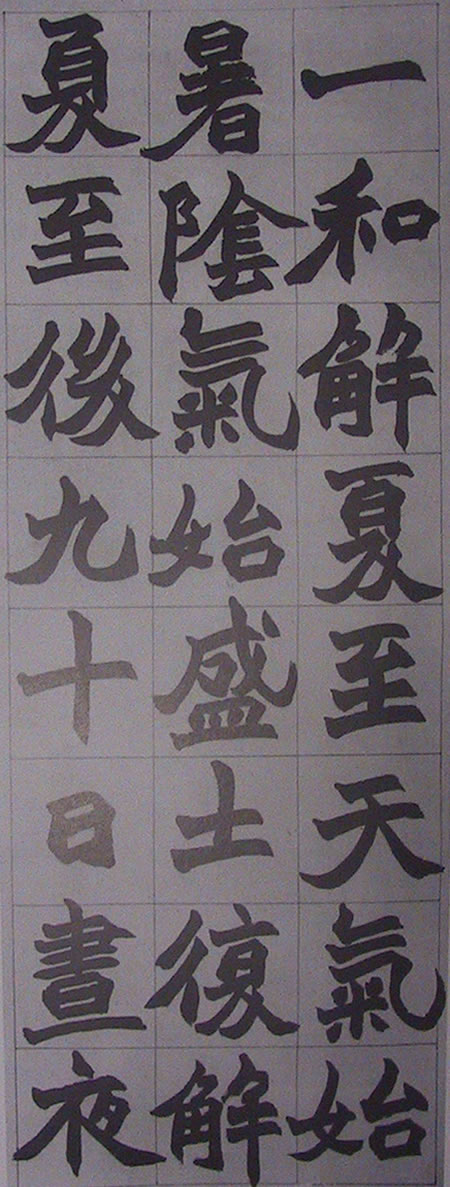 一和解夏至天氣始
暑陰氣始盛土復解
夏至後九十日晝夜